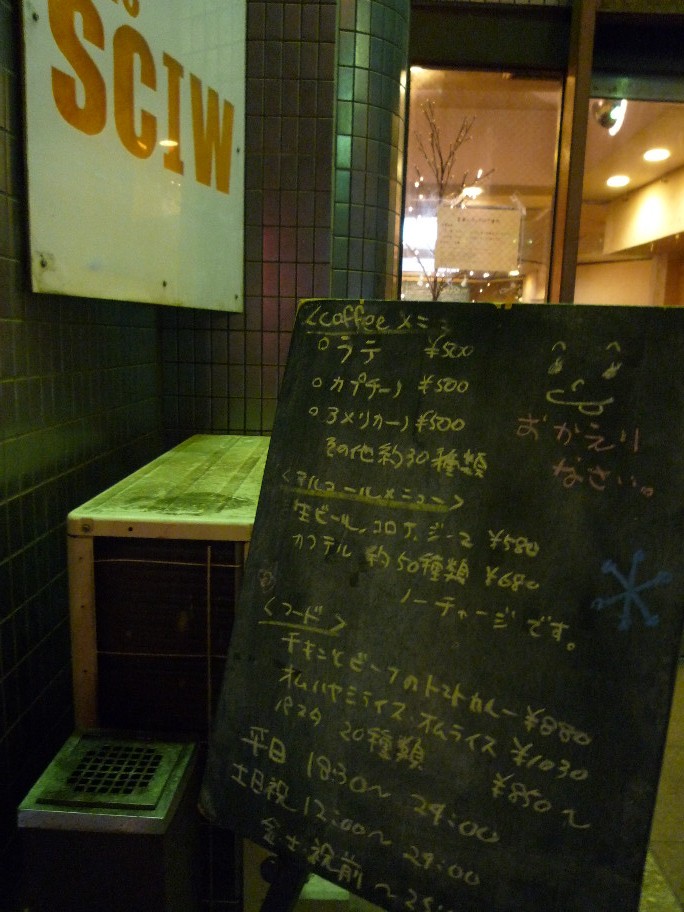 SCIW
〈coffeeメニュー
ラテ ¥500
カプチーノ ¥500
アメリカーノ ¥500
その他約30種類
おかえり
なさい。
〈アルコールメニュー〉
生ビール、コロナ、ジーマ ¥580
カクテル 約50種類 ¥680
ノーチャージです。
〈フード〉
チキンとビーフのトマトカレー ¥880
オムハヤシライス、オムライス ¥1030
パスタ 20種類 ¥850〜
平日 18:30〜 24:00
土日祝 12:00〜 24:00
金土祝前 〜